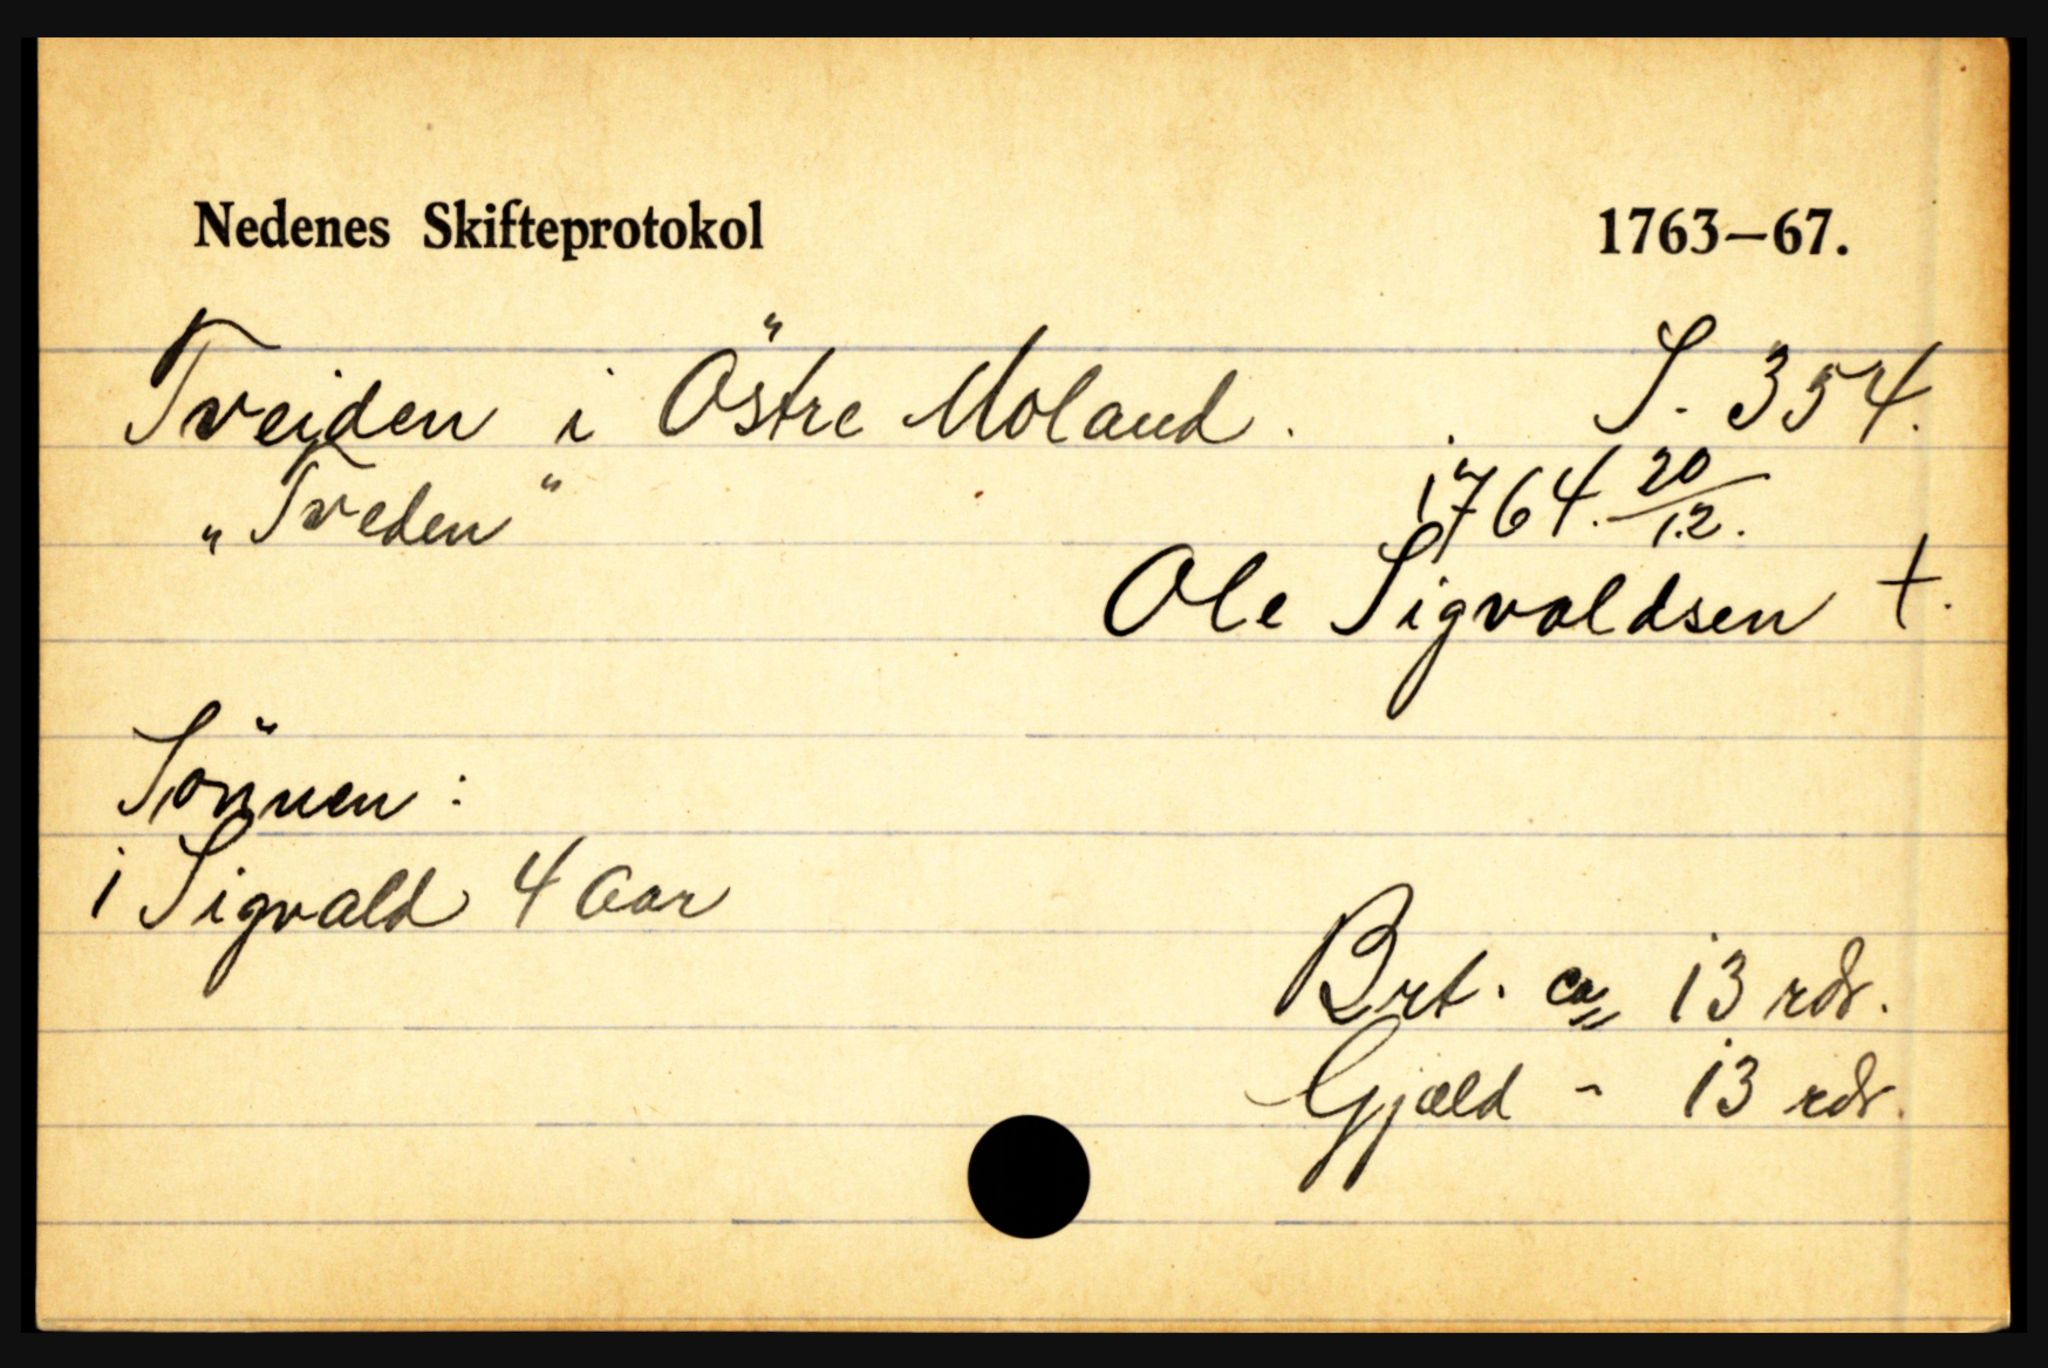 Nedenes Skifteprotokol 1763—67.
Tveiden i Östre Moland. S. 354.
„Tveden" 1764. 20/12.
Ole Sigvaldsen †.
Sönnen:
1 Sigvald 4 Aar
Brt. ca 13 rdr.
Gjæld - 13 rdr.